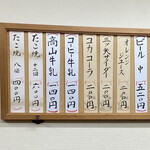 ビール 中 五二〇円
オレンジジュース 二〇〇円
三ツ矢サイダー 二〇〇円
コカコーラ 二〇〇円
コーヒー牛乳 一四〇円
高山牛乳 一四〇円
たこ焼 十二ヶ 六〇〇円
たこ焼 八ヶ 四〇〇円